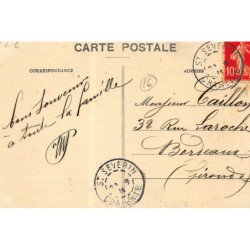 CARTE POSTALE
CORRESPONDANCE
ADRESSE
Bon souvenir
à toute la famille
16
Monsieur Caillon
32 Rue Laroche
Bordeaux
(Gironde)
ST SEVERIN
CHARENTE
ST SEVERIN
CHARENTE
10